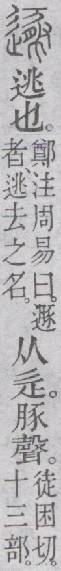 逃也。鄭注周易曰。遯
者逃去之名。
从辵。豚聲。徒困切。
十三部。